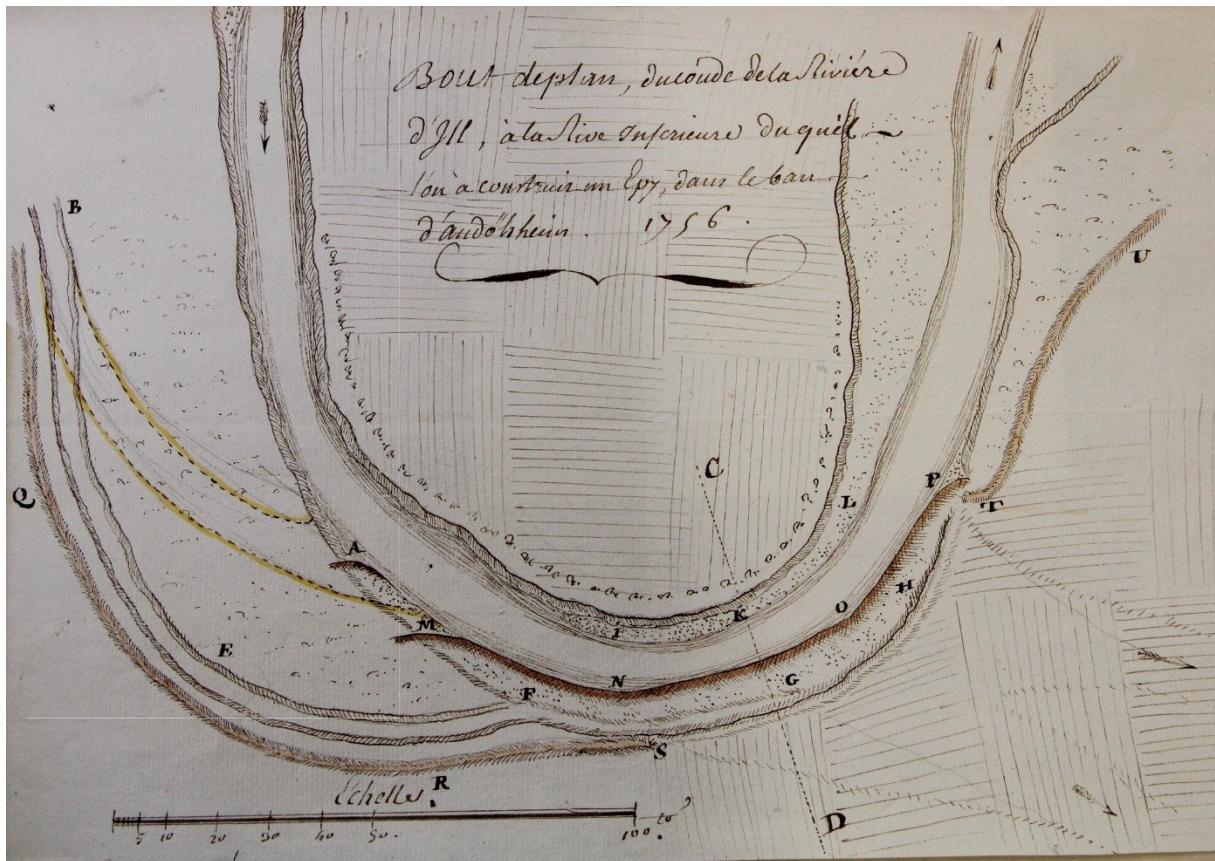 Bout de plan, du coude de la Riviére
d'Ill, à la Rive Inferieure du quél
l'on a construit un Epy, dans le ban
d'andolsheim. 1756.
B
U
C
Q
L
P
T
A
K
I
H
O
M
E
N
G
F
S
R
D
Echelle
5 10 20 30 40 50. 100 to